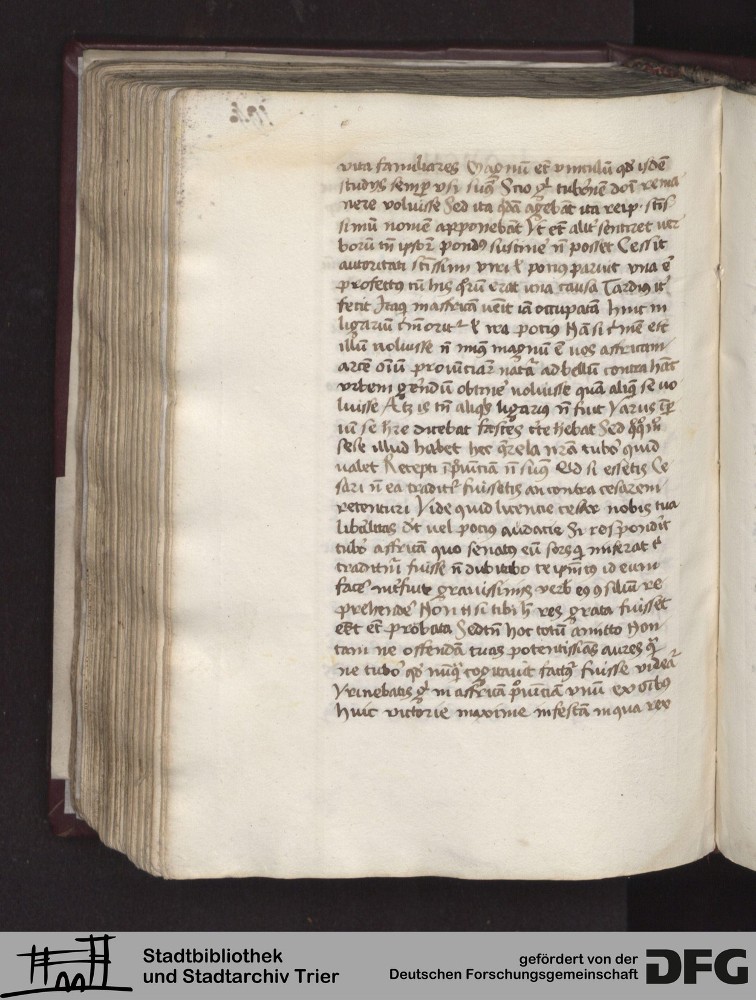 vita familiares Magnū et vinculū qđ isdē
studijs semp vsi sum9 Scio gͥ tuberonē domi rema
nere voluisse Sed ita qdā agebāt ita reip. scīs
simū nomē apponebāt Vt etiā aliter sentiret ver
borū tn ipsor pond9 sustinē n̄ posset Cessit
autoritati
viri l potius paruit vna ē
profectus cū his qrū erat vna causa Tardius it9
fecit Itaq in affricā venit iā occupatā hinc in
ligariū
orit l ira potius Nā si
illū voluisse n̄ min9 magnū ē vos affricam
arcē oīū prouinciarū natā ad bellū contra hāc
vrbem gerēdū obtinē voluisse quā aliq se vo
luisse Atq is tn aliqs ligarius n̄ fuit Varus
iū se hre dicebat fasces cte hebat Sed
sese illud habet hec qrela nrā tubo quid
valet Recepti
prouinciā n̄ sum9 Qd si essetis Ce
sari n̄ ea traditi fuissetis an contra cesarem
retenturi Vide quid licentie cesar nobis tua
libālitas det vel potius audacie Si respondit
tubo affricā quo senatus eū sorsq miserat
traditurū fuisse n̄ dubitabo te ipm
id eum
facē
grauissimis verb eo
re
prehendē Non n si tibi h res grata fuisset
et probata Sed tn hoc totū amitto Non
tam ne offendā tuas
aures
ne tubo qđ nūq cogitauit factur fuisse videat
Veniebatis gͥ in affricā prouinciā vnū ex oībus
huic victorie maxime infestā in qua rex
Stadtbibliothek
und Stadtarchiv Trier
gefördert von der
Deutschen Forschungsgemeinschaft
DFG